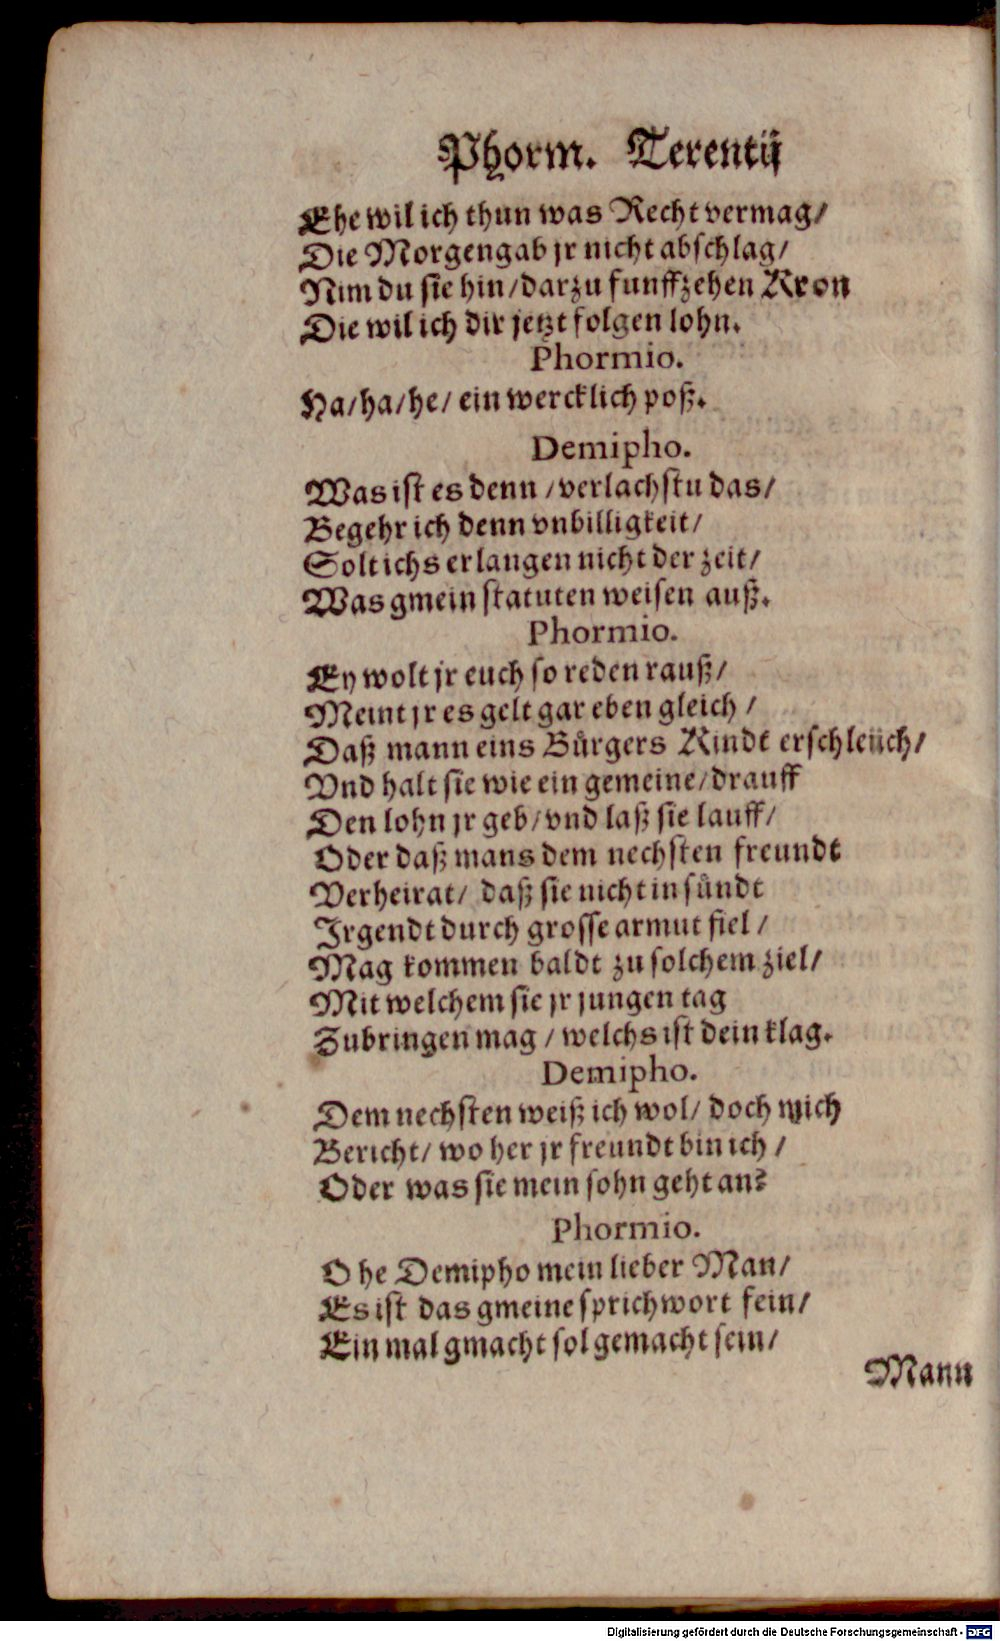 Phorm. Terentij
Ehe wil ich thun was Recht vermag/
Die Morgengab jr nicht abschlag/
Nim du sie hin/darzu funffzehen Kron
Die wil ich dir jetzt folgen lohn.
Phormio.
Ha/ha/he/ ein wercklich poß.
Demipho.
Was ist es denn/verlachstu das/
Begehr ich denn vnbilligkeit/
Solt ichs erlangen nicht der zeit/
Was gmein statuten weisen auß.
Phormio.
Ey wolt jr euch so reden rauß/
Meint jr es gelt gar eben gleich/
Daß mann eins Bůrgers Kindt erschleich/
Vnd halt sie wie ein gemeine/drauff
Den lohn jr geb/vnd laß sie lauff/
Oder daß mans dem nechsten freundt
Verheirat/ daß sie nicht in sůndt
Irgendt durch grosse armut fiel/
Mag kommen baldt zu solchem ziel/
Mit welchem sie jr jungen tag
Zubringen mag/welchs ist dein klag.
Demipho.
Dem nechsten weiß ich wol/ doch mich
Bericht/ wo her jr freundt bin ich/
Oder was sie mein sohn geht an?
Phormio.
O he Demipho mein lieber Man/
Es ist das gmeine sprichwort fein/
Ein mal gmacht sol gemacht sein/
Mann
Digitalisierung gefördert durch die Deutsche Forschungsgemeinschaft - DFG